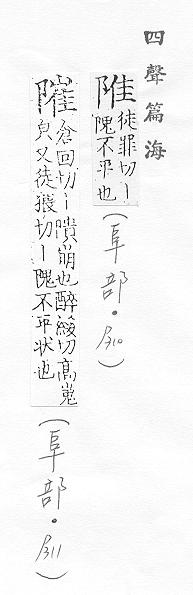 四聲篇海
陮
徒罪切丨
隗不平也
(阜部·310)
倉回切丨隤崩也醉綏切高嵬
皃又徒猥切丨隗不平状也
(阜部·311)